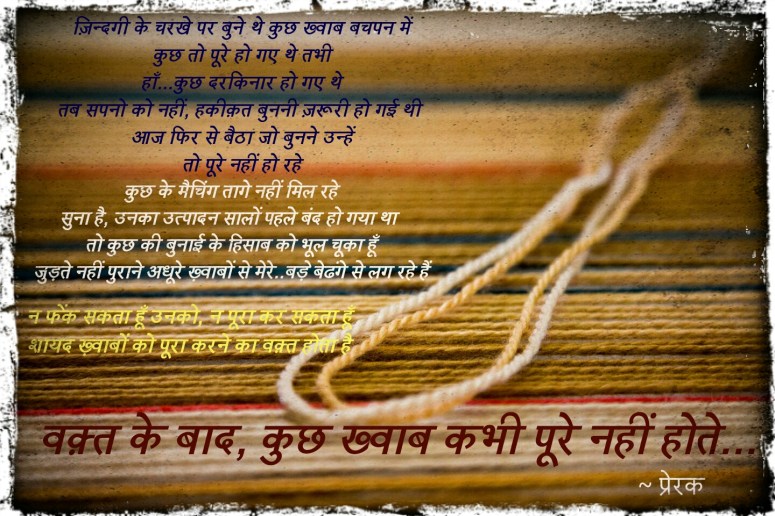 ज़िन्दगी के चरखे पर बुने थे कुछ ख्वाब बचपन में
कुछ तो पूरे हो गए थे तभी
हाँ...कुछ दरकिनार हो गए थे
तब सपनो को नहीं, हकीक़त बुननी ज़रूरी हो गई थी
आज फिर से बैठा जो बुनने उन्हें
तो पूरे नहीं हो रहे
कुछ के मैचिंग तागे नहीं मिल रहे
सुना है, उनका उत्पादन सालों पहले बंद हो गया था
तो कुछ की बुनाई के हिसाब को भूल चूका हूँ
जुड़ते नहीं पुराने अधूरे ख़्वाबों से मेरे..बड़े बेढंगे से लग रहे हैं
न फेंक सकता हूँ उनको, न पूरा कर सकता हूँ
शायद ख़्वाबों को पूरा करने का वक़्त होता है
वक़्त के बाद, कुछ ख्वाब कभी पूरे नहीं होते...
~ प्रेरक